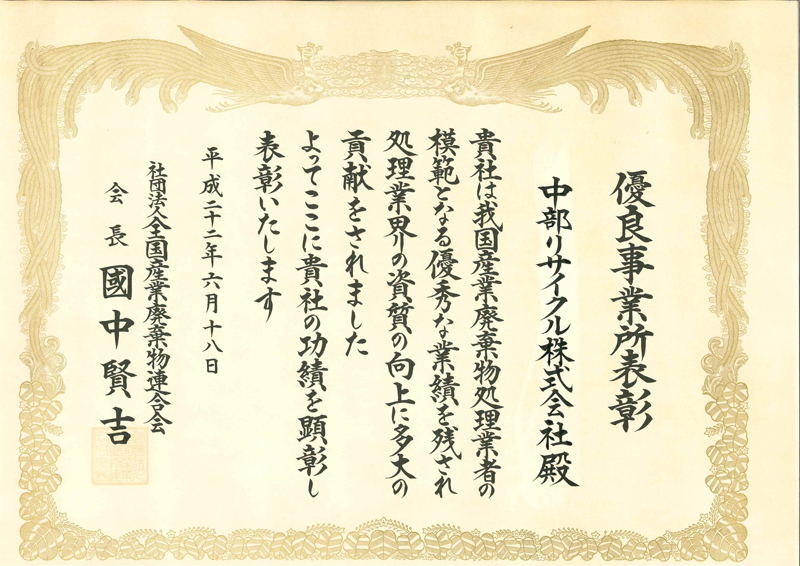 優良事業所表彰
中部リサイクル株式会社殿
貴社は我国産業廃棄物処理業者の
模範となる優秀な業績を残され
処理業界の資質の向上に多大の
貢献をされました
よってここに貴社の功績を顕彰し
表彰いたします
平成二十二年六月十八日
社団法人全国産業廃棄物連合会
会長 國中賢吉